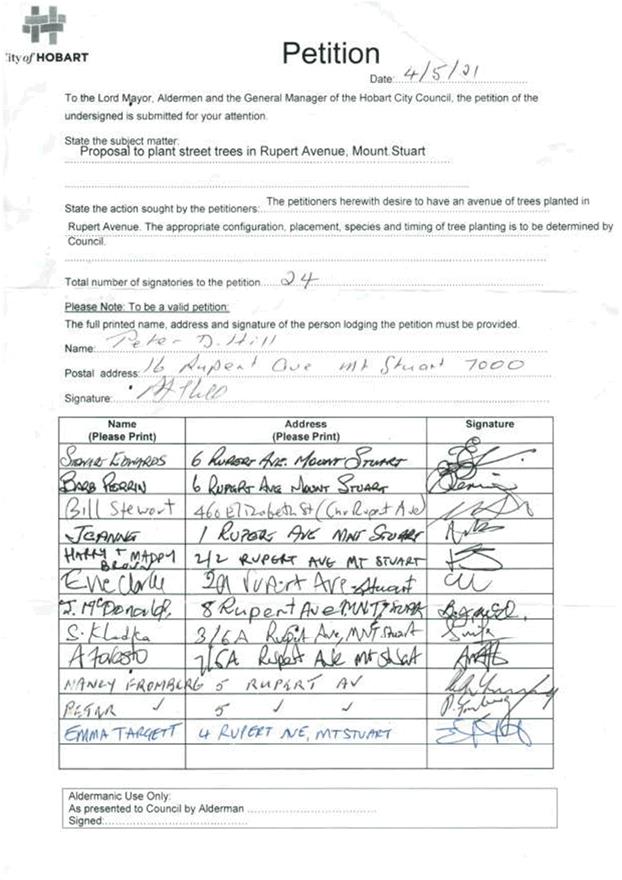 City of HOBART
Petition
Date: 4/5/21
To the Lord Mayor, Aldermen and the General Manager of the Hobart City Council, the petition of the
undersigned is submitted for your attention.
State the subject matter:
Proposal to plant street trees in Rupert Avenue, Mount Stuart
State the action sought by the petitioners: The petitioners herewith desire to have an avenue of trees planted in
Rupert Avenue. The appropriate configuration, placement, species and timing of tree planting is to be determined by
Council.
Total number of signatories to the petition 24
Please Note: To be a valid petition:
The full printed name, address and signature of the person lodging the petition must be provided.
Name: Peter D. Hill
Postal address: 16 Rupert Ave Mt Stuart 7000
Signature:
Name Address Signature
(Please Print) (Please Print)
STUART EDWARDS 6 RUPERT AVE. MOUNT STUART
BARB PERRIN 6 RUPERT AVE MOUNT STUART
Bill Stewart 460 Elizabeth St (Cnr Rupert Ave)
JEANNE 1 RUPERT AVE MNT STUART
HARRY + MADDY 2/2 RUPERT AVE MT STUART
BROWN
Eve Clarke 2a Rupert Ave Stuart
J. McDonald, 8 Rupert Ave MNT STUAR
S. Kladka 3/6A Rupert Ave, MNT. Stuart
/6A Rupert Ave Mt Stuart
NANCY FROMBERG 5 RUPERT AV
PETER ✓ 5 ✓ ✓ P. Fromberg
EMMA TARGETT 4 RUPERT AVE, MT STUART
Aldermanic Use Only:
As presented to Council by Alderman
Signed: